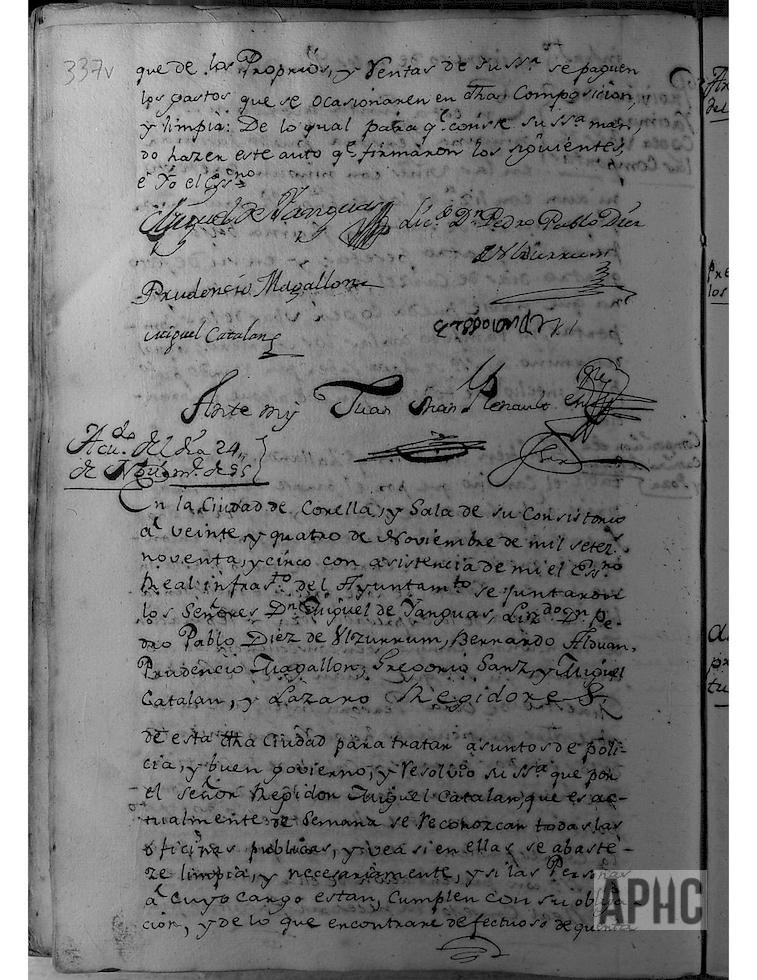 337v
que de los Proprios, y Rentas de su ssª se paguen
los gastos que se ocasionaren en dha Composicion,
y limpia: De lo qual para qe conste su ssª man-
do hazer este auto qe firmaron los siguientes,
e Yo el Essno
Miguel de Yanguas Licdo Dn Pedro Pablo Diez
de Ulzurrum
Prudencio Magallon
Miguel Catalan
Ante my Juan Renault
Acudo del dia 24,,
de Novme de 95
En la Ciudad de Corella, y Sala de su Consistorio
a veinte, y quatro de Noviembre de mil setezs
noventa, y cinco con asistencia de mi el Essno
Real infrasto del Ayuntamto se juntaron
los Señores Dn Miguel de Yanguas, Lizdo Dn Pe-
dro Pablo Diez de Ulzurrum, Bernardo Alduan,
Prudencio Magallon, Gregorio Sanz, y Miguel
Catalan, y Lazaro Regidores
de esta dha Ciudad para tratar asuntos de poli-
cia, y buen govierno, y resolvio su ssª que por
el señor Regidor Miguel Catalan, que es ac-
tualmente de Semana se reconozcan todas las
oficinas publicas, y vea si en ellas se abaste-
ze limpia, y necesariamente, y si las Personas
a cuyo cargo estan, cumplen con su obliga-
cion, y de lo que encontrare defectuoso de quenta
APHC